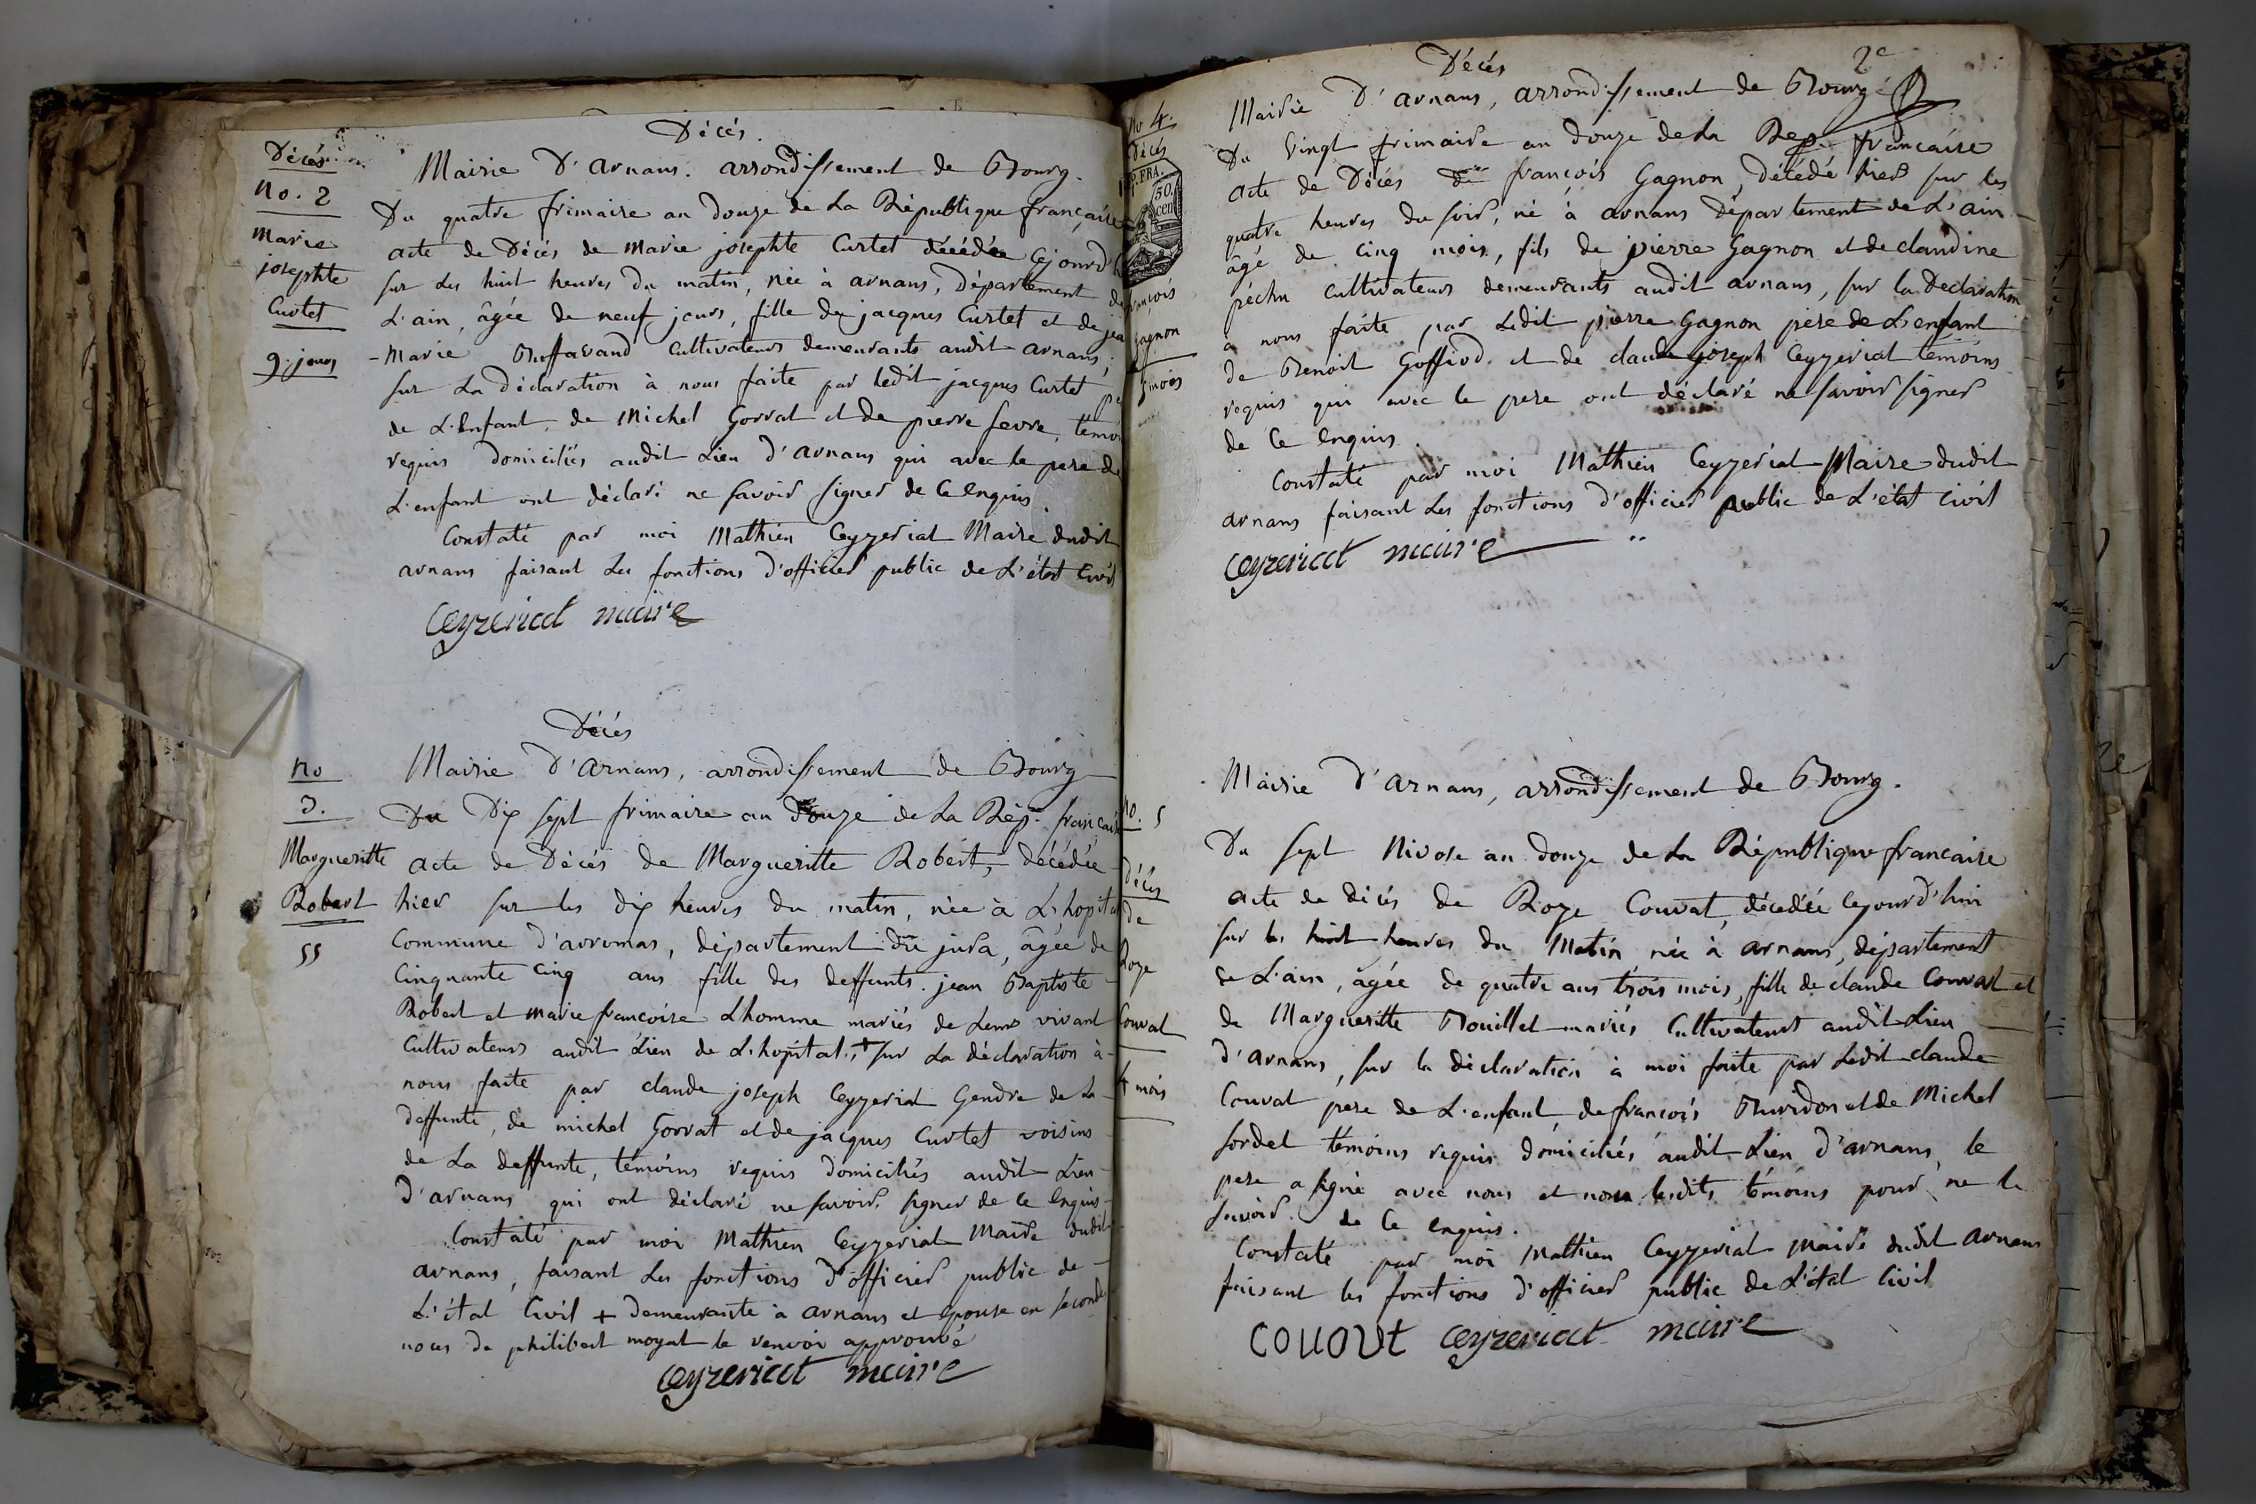 Décés
No. 2
Marie
josephte
Curtet
9. jours
Décés.
Mairie D'arnans. arrondissement de Bourg.
Du quatre frimaire an douze de La République française
acte de Décés de Marie josephte Curtet décédée Cejourd
sur Les huit heures Du matin, née à arnans, Département de
L'ain, âgée de neuf jours, fille de jacques Curtet et de
-Marie Cultivateurs demeurants audit arnans,
sur La déclaration à nous faite par ledit jacques Curtet
de L'Enfant, de Michel Gorrat et de pierre fevre,
requis domiciliés audit Lieu d'arnans qui avec le pere de
L'enfant ont déclaré ne savoir signer de Ce Enquis
Constaté par moi Mathieu Ceyzeriat Maire dudit
arnans faisant Les fonctions d'officier public de L'état Civil
Ceyzeriat maire
No
3.
Margueritte
Robert
55
Décés
Mairie D'arnans, arrondissement de Bourg
Du Dix sept frimaire an douze de La Rép. française
acte de Décés de Margueritte Robert, décédée
hier sur les dix heures du matin, née à L'hopital
Commune d'arromas, département du jura, âgée de
Cinquante Cinq ans fille des deffunts jean Baptiste
Robert et marie françoise Lhomme mariés de Leur vivant
Cultivateurs audit Lieu de L'hopital, + sur La déclaration à
nous faite par claude joseph Ceyzeriat Gendre de La
deffunte, de michel Gorrat et de jacques Curtet voisins
de La deffunte, témoins requis domiciliés audit Lieu
d'arnans qui ont déclaré ne savoir signer de Ce Enquis
Constaté par moi Mathieu Ceyzeriat Maire dudit
arnans, faisant Les fonctions d'officier public de
L'état Civil + demeurante à arnans et Epouse en seconde
noces de philibert moyat le renvoi approuvé
Ceyzeriat maire
No 4.
Décés
P. FRA.
50.
cen
françois
gagnon
5 mois
Décés
2e
Mairie D'arnans, arrondissement de Bourg
Du vingt frimaire an douze de La Rep. francaise
acte de Décés de françois Gagnon, décédé hier sur les
quatre heures du soir, né à arnans département de L'ain
âgé de cinq mois, fils de pierre Gagnon et de claudine
péchu cultivateurs demeurants audit arnans, sur la Declaration
a nous faite par Ledit pierre Gagnon père de L'enfant
de Benoit Goffiod et de claude joseph Ceyzeriat témoins
requis qui avec le pere ont déclaré ne savoir signer
de Ce Enquis.
Constaté par moi Mathieu Ceyzeriat Maire dudit
arnans faisant Les fonctions d'officier public de L'état Civil
Ceyzeriat maire
No. 5
décés
De
Roze
Couvat
4 mois
Mairie D'arnans, arrondissement de Bourg.
Du sept Nivose an douze de La République francaise
acte de décés de Roze Couvat, décedée Cejourd'hui
sur les huit heures du Matin née à arnans, département
de L'ain, âgée de quatre ans trois mois, fille de claude Couvat et
de Margueritte Bouillet mariés Cultivateurs audit Lieu
d'arnans, sur la déclaration à moi faite par Ledit claude
Couvat pere de L'enfant, de françois et de Michel
sordet témoins requis domiciliés audit Lieu d'arnans, le
pere a signé avec nous et non lesdits témoins pour ne le
savoir de Ce enquis.
Constaté par moi Mathieu Ceyzeriat maire dudit arnans
faisant les fonctions d'officier public de L'état Civil
couvat Ceyzeriat maire